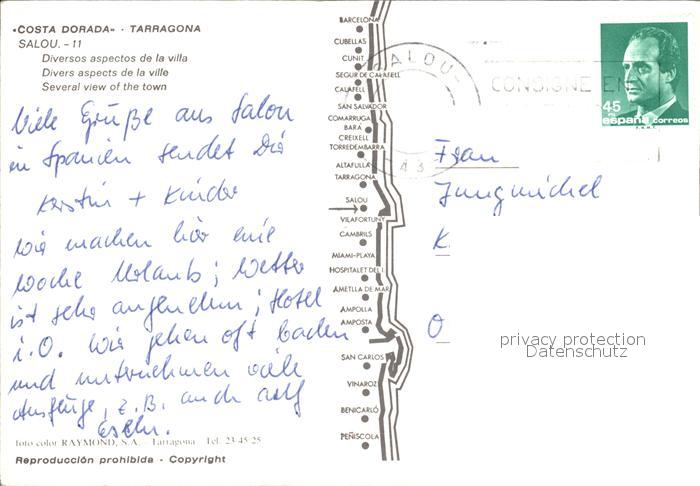 «COSTA DORADA» - TARRAGONA
SALOU. - 11
Diversos aspectos de la villa
Divers aspects de la ville
Several view of the town
Viele Grüße aus Salou
in Spanien sendet Dir
Kerstin + Kinder
Wir machen hier eine
Woche Urlaub; Wetter
ist sehr angenehm; Hotel
i.O. Wir gehen oft baden
und unternehmen viele
Ausflüge, z.B. auch auf
Eseln.
foto color RAYMOND, S.A. - Tarragona Tel. 23-45-25
Reproducción prohibida - Copyright
BARCELONA
CUBELLAS
CUNIT
SEGUR DE CALAFELL
CALAFELL
SAN SALVADOR
COMARRUGA
BARÁ
CREIXELL
TORREDEMBARRA
ALTAFULLA
TARRAGONA
SALOU
VILAFORTUNY
CAMBRILS
MIAMI-PLAYA
HOSPITALET DE I.
AMETLLA DE MAR
AMPOLLA
AMPOSTA
SAN CARLOS
VINAROZ
BENICARLÓ
PEÑISCOLA
SALOU-
43
CONSIGNE EN
45
PTS
españa correos
F.N.M.T.
Frau
Jungmichel
K.
O.
privacy protection
Datenschutz